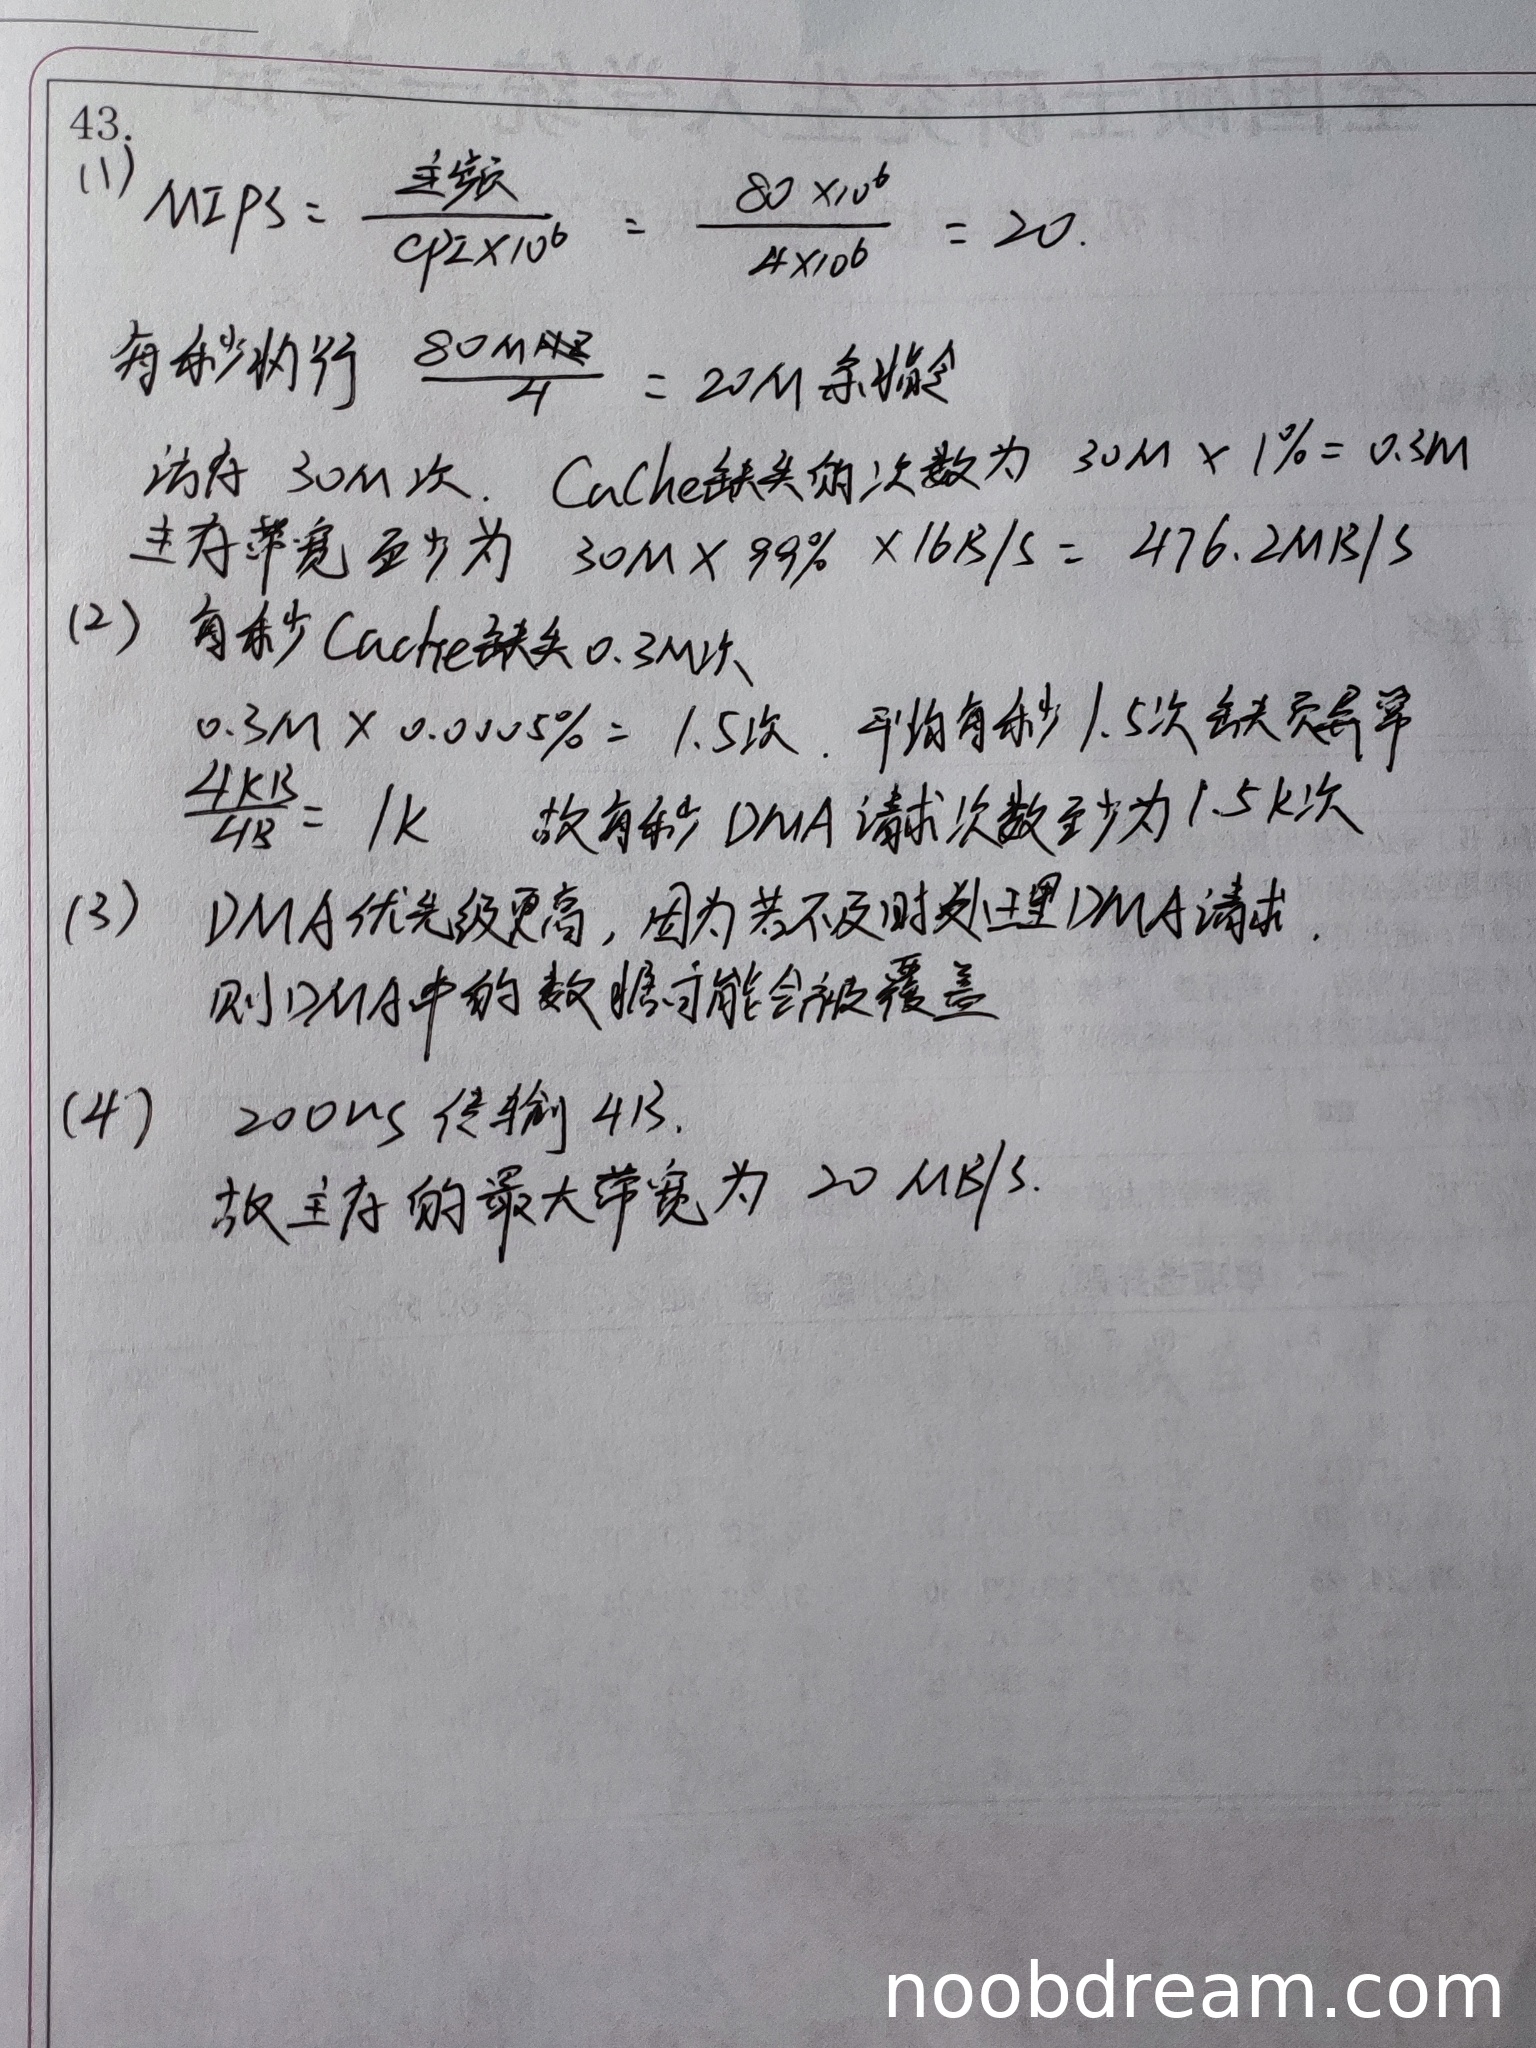 43.
(1) MIPS = 主频 / CPI×10⁶ = 80×10⁶ / 4×10⁶ = 20.
每秒执行 80MHZ / 4 = 20M 条指令
访存 30M次. Cache缺失的次数为 30M × 1% = 0.3M
主存带宽至少为 30M × 99% × 16B/S = 476.2MB/S
(2) 每秒Cache缺失0.3M次
0.3M × 0.0005% = 1.5次. 平均每秒1.5次缺页异常
4KB / 4B = 1K 故每秒DMA请求次数至少为1.5K次
(3) DMA优先级更高, 因为若不及时处理DMA请求.
则DMA中的数据可能会被覆盖
(4) 200ns 传输 4B.
故主存的最大带宽为 20 MB/S.
noobdream.com